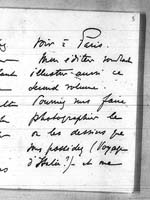 5
voir à Paris.
Mon éditeur voudrait
illustrer aussi ce
second volume.
Pourriez vous faire
photographier le
ou les dessins que
vous possédez (Voyage
d'Italie?) et me